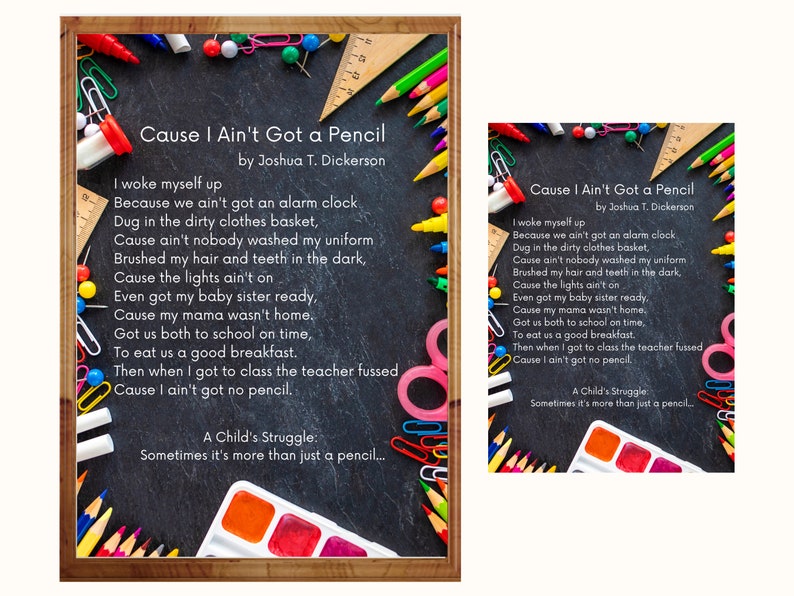 Cause I Ain't Got a Pencil
by Joshua T. Dickerson
I woke myself up
Because we ain't got an alarm clock
Dug in the dirty clothes basket,
Cause ain't nobody washed my uniform
Brushed my hair and teeth in the dark,
Cause the lights ain't on
Even got my baby sister ready,
Cause my mama wasn't home.
Got us both to school on time,
To eat us a good breakfast.
Then when I got to class the teacher fussed
Cause I ain't got no pencil.
A Child's Struggle:
Sometimes it's more than just a pencil...
Cause I Ain't Got a Pencil
by Joshua T. Dickerson
I woke myself up
Because we ain't got an alarm clock
Dug in the dirty clothes basket,
Cause ain't nobody washed my uniform
Brushed my hair and teeth in the dark,
Cause the lights ain't on
Even got my baby sister ready,
Cause my mama wasn't home.
Got us both to school on time,
To eat us a good breakfast.
Then when I got to class the teacher fussed
Cause I ain't got no pencil.
A Child's Struggle:
Sometimes it's more than just a pencil...